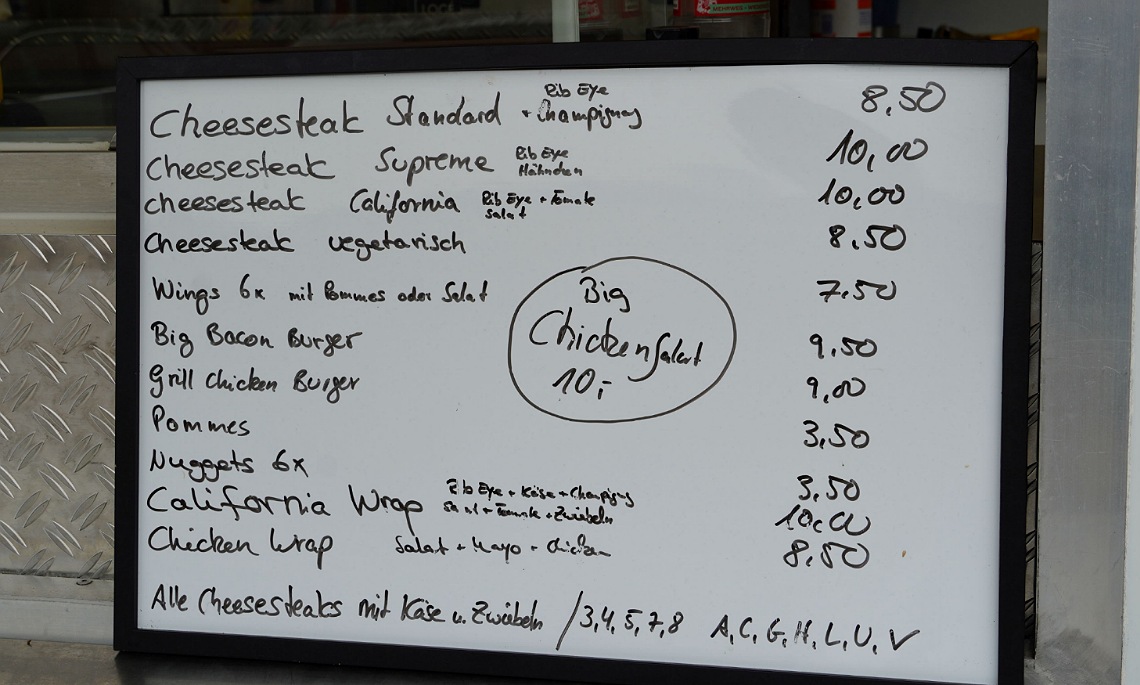 Cheesesteak Standard + Rib Eye Champigns 8,50
Cheesesteak Supreme Rib Eye Hähnchen 10,00
Cheesesteak California Rib Eye + Tomate Salat 10,00
Cheesesteak vegetarisch 8.50
Wings 6x mit Pommes oder Salat 7.50
Big Bacon Burger 9.50
Grill Chicken Burger 9,00
Pommes 3,50
Nuggets 6x 3,50
California Wrap Rib Eye + Käse + Champigns + Tomate + Zwiebeln 10,00
Chicken Wrap Salat + Mayo + Chicken 8,50
Big
Chicken Salat
10,-
Alle Cheesesteaks mit Käse u. Zwiebeln / 3,4,5,7,8 A,C,G,H,L,U,V